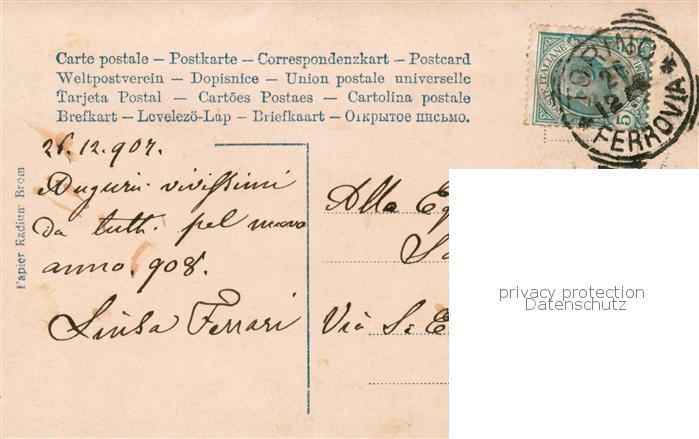 Carte postale – Postkarte – Correspondenzkart – Postcard
Weltpostverein – Dopisnice – Union postale universelle
Tarjeta Postal – Cartões Postaes – Cartolina postale
Brefkart – Levelező-Lap – Briefkaart – Открытое письмо.
Papier Radium Brom
TORINO
* FERROVIA *
12
5
26.12.907.
Auguri vivissimi
da tutti pel nuovo
anno. 908.
Ferrari
Alla Eg
Via S.
privacy protection
Datenschutz